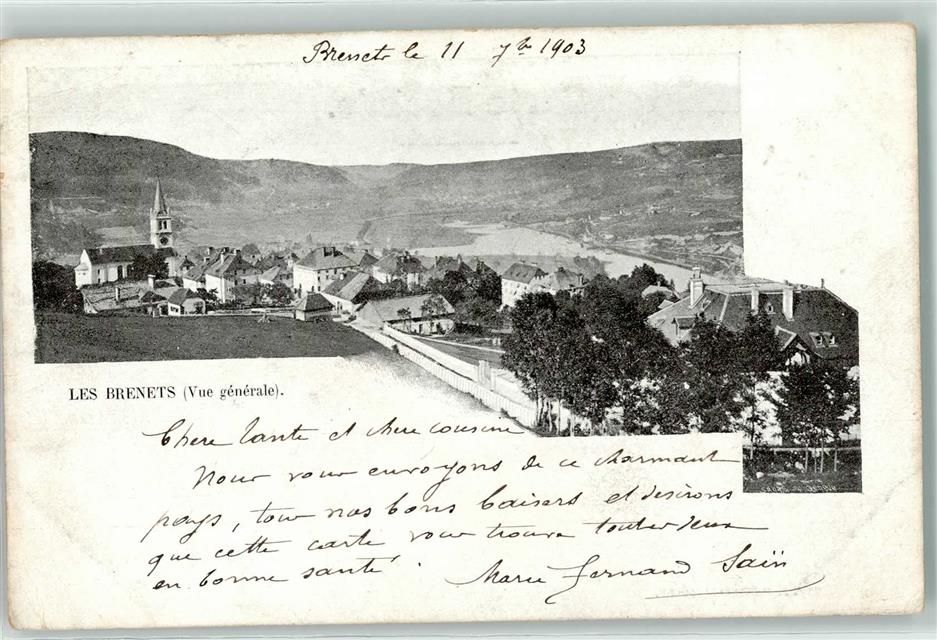 Brenets le 11 7bre 1903
LES BRENETS (Vue générale).
Chere tante et chere cousine
Nous vous envoyons de ce charmant
pays, tous nos bons baisers et desirons
que cette carte vous trouve toutes deux
en bonne santé.
Marie Fernand